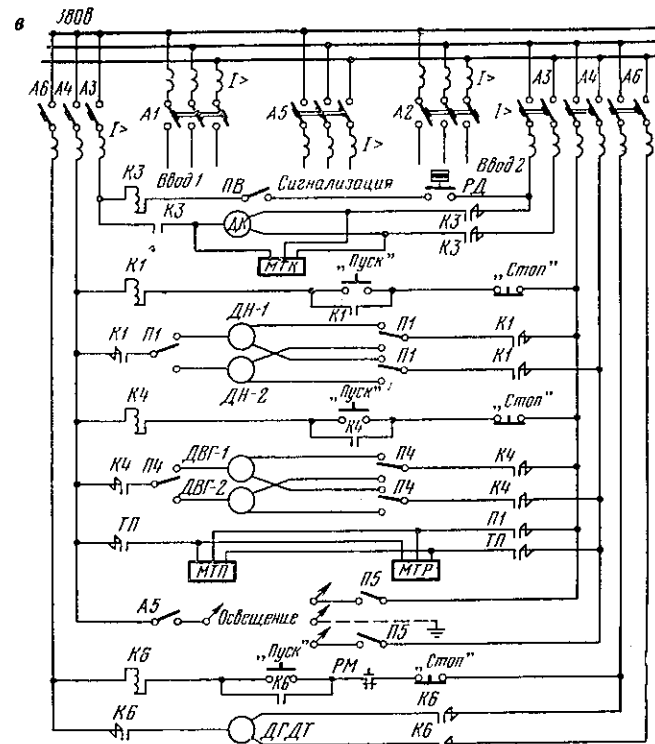 в
380В
А6 А4 А3
А1
I>
I>
А5
I>
А2
I>
I>
А3
А4
А6
Ввод 1
Ввод 2
К3
ПВ
Сигнализация
РД
К3
ДК
К3
К3
МТК
К1
„Пуск"
К1
„Стоп"
ДН-1
К1
П1
П1
К1
П1
К1
ДН-2
К4
„Пуск"
К4
„Стоп"
ДВГ-1
К4
П4
П4
К4
ДВГ-2
П4
К4
ТП
П1
ТП
МТП
МТР
А5
Освещение
П5
П5
К6
„Пуск"
К6
РМ
„Стоп"
К6
К6
ДГДТ
К6